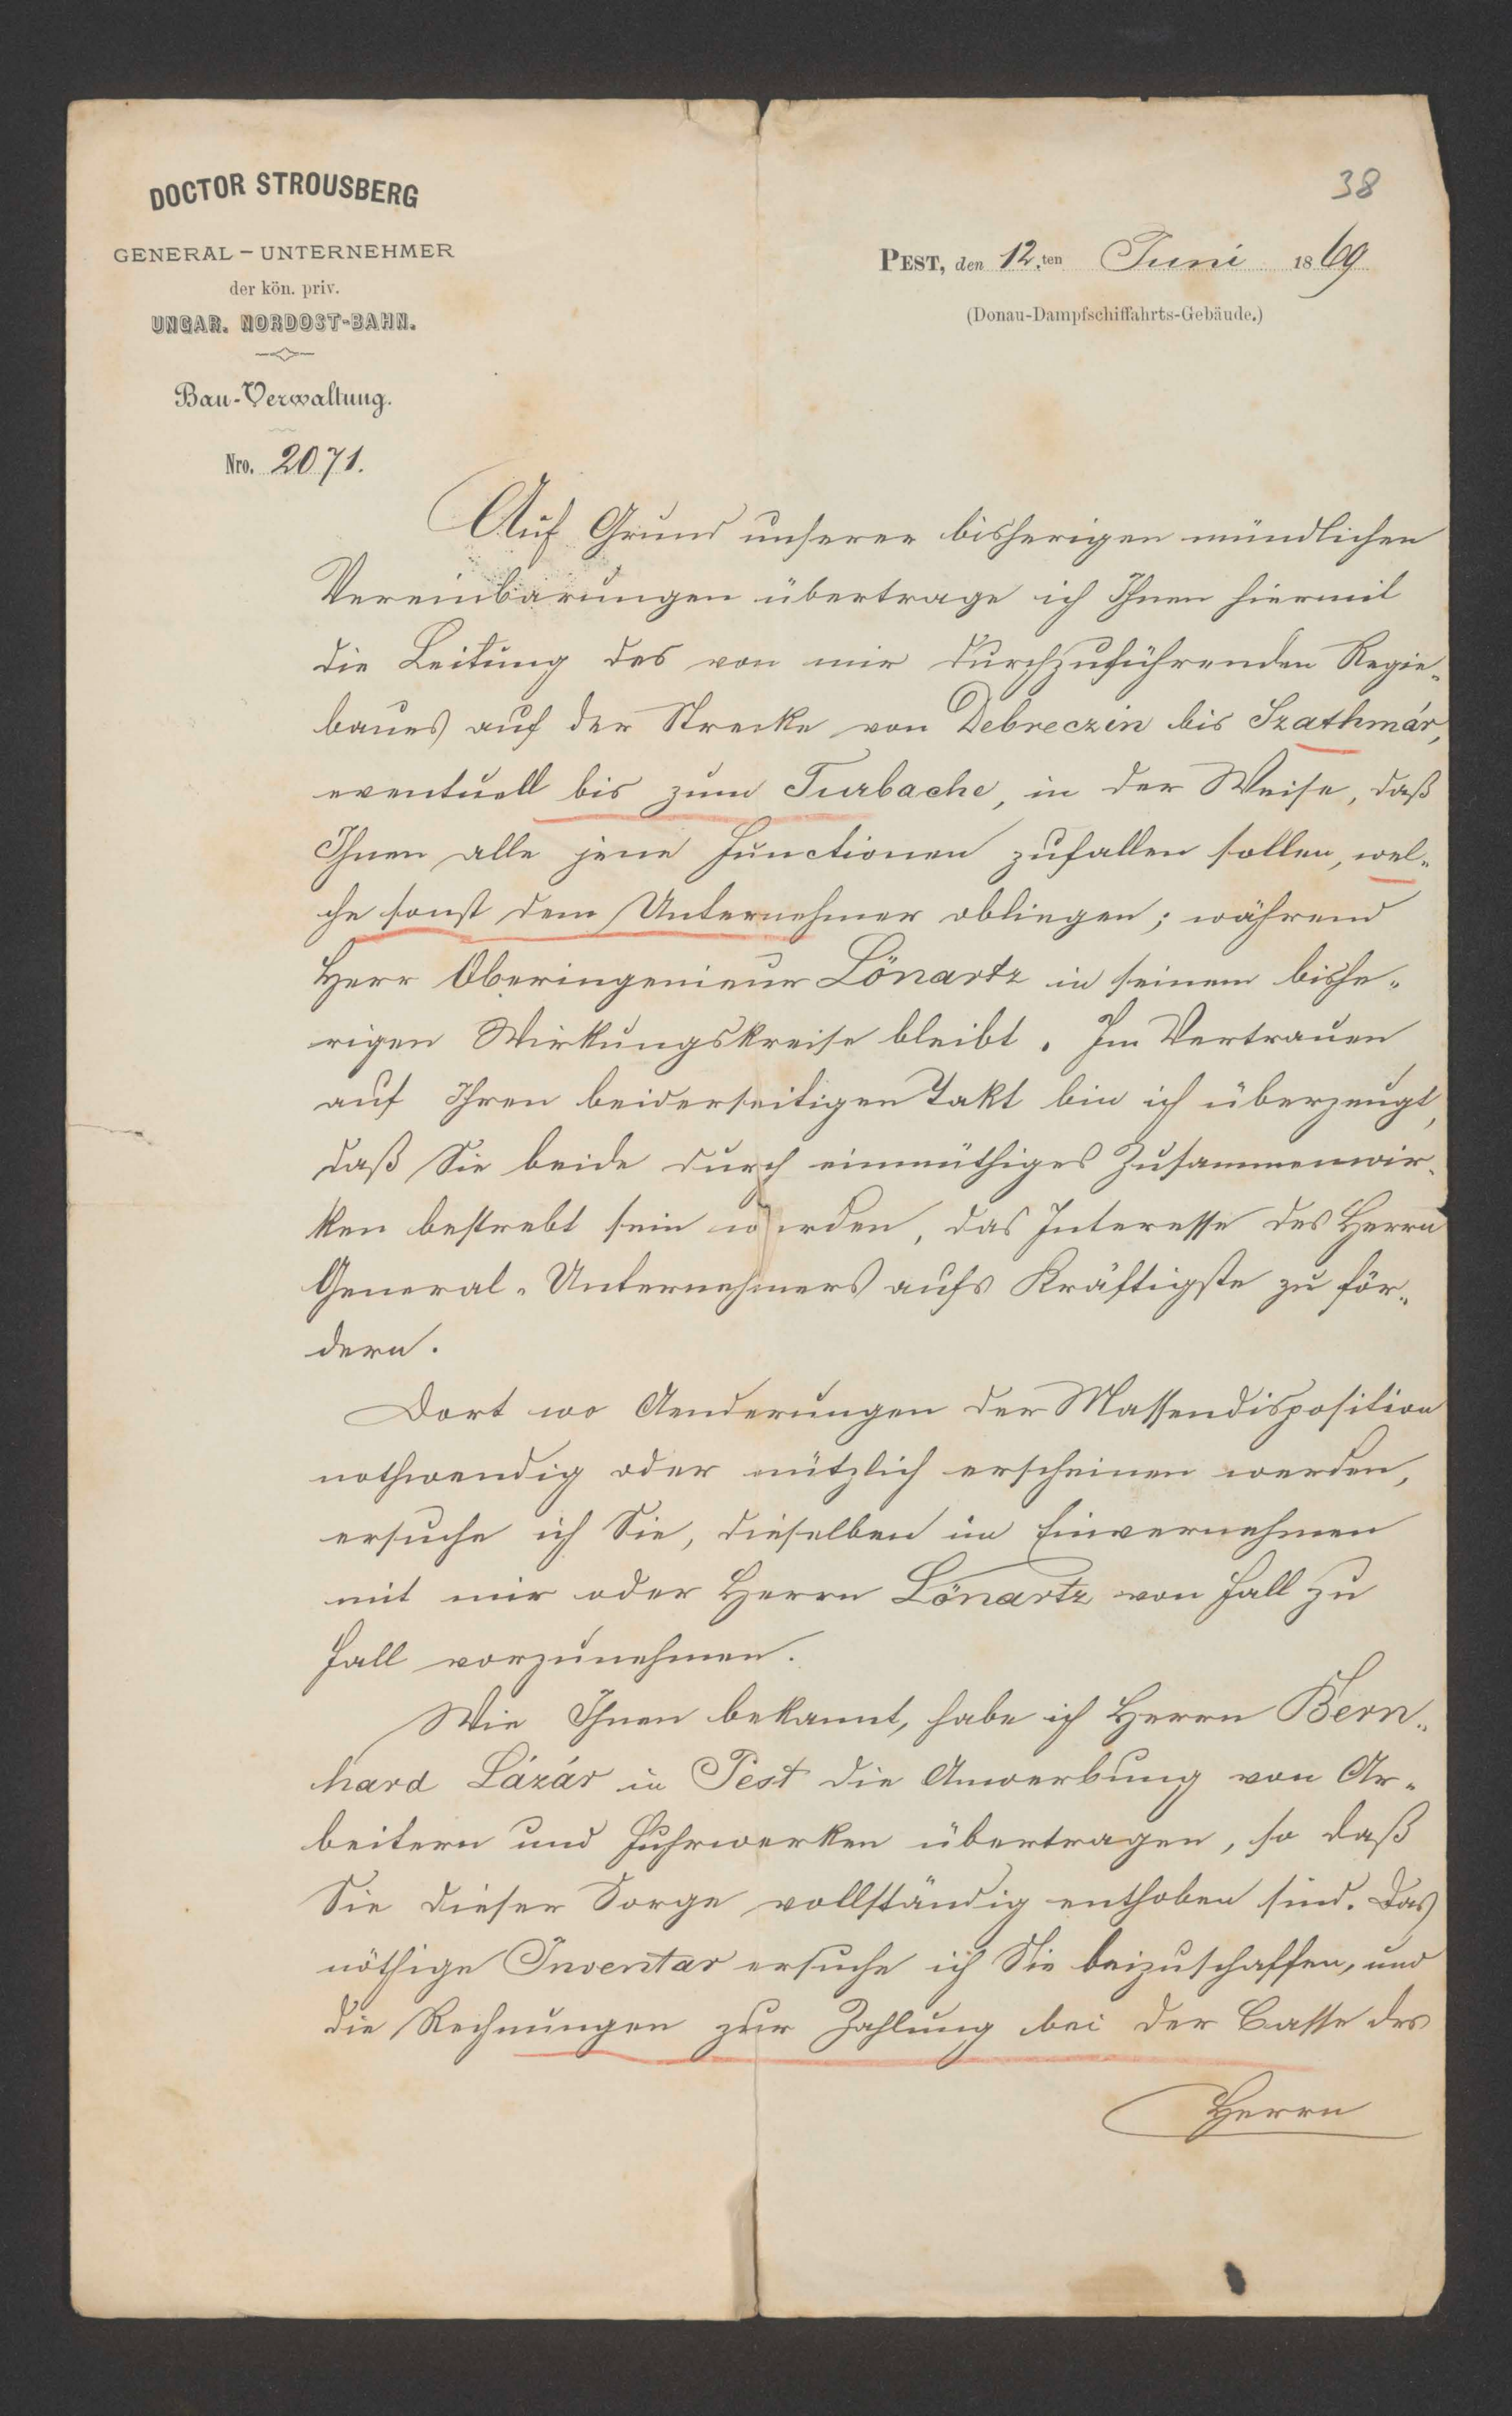 DOCTOR STROUSBERG
GENERAL-UNTERNEHMER
der kön. priv.
UNGAR. NORDOST-BAHN.
Bau-Verwaltung.
Nro. 2071.
38
PEST, den 12.ten Juni 1869
(Donau-Dampfschiffahrts-Gebäude.)
Auf Grund unserer bisherigen mündlichen
Vereinbarungen übertrage ich Ihnen hiermit
die Leitung des von mir durchzuführenden Regie-
baues auf der Strecke von Debreczin bis Szathmár,
eventuell bis zum Turbache, in der Weise, daß
Ihnen alle jene Functionen zufallen sollen, wel-
che sonst dem Unternehmer obliegen; während
Herr Oberingenieur Lönartz in seinem bishe-
rigen Wirkungskreise bleibt. Im Vertrauen
auf Ihren beiderseitigen Takt bin ich überzeugt,
daß Sie beide durch einmüthiges Zusammenwir-
ken bestrebt sein werden, das Interesse des Herrn
General-Unternehmers aufs Kräftigste zu för-
dern.
Dort wo Aenderungen der Massendisposition
nothwendig oder nützlich erscheinen werden,
ersuche ich Sie, dieselben im Einvernehmen
mit mir oder Herrn Lönartz von Fall zu
Fall vorzunehmen.
Wie Ihnen bekannt, habe ich Herrn Bern-
hard Lázár in Pest die Anwerbung von Ar-
beitern und Fuhrwerken übertragen, so daß
Sie dieser Sorge vollständig enthoben sind. Das
nöthige Inventar ersuche ich Sie beizuschaffen, und
die Rechnungen zur Zahlung bei der Casse des
Herrn